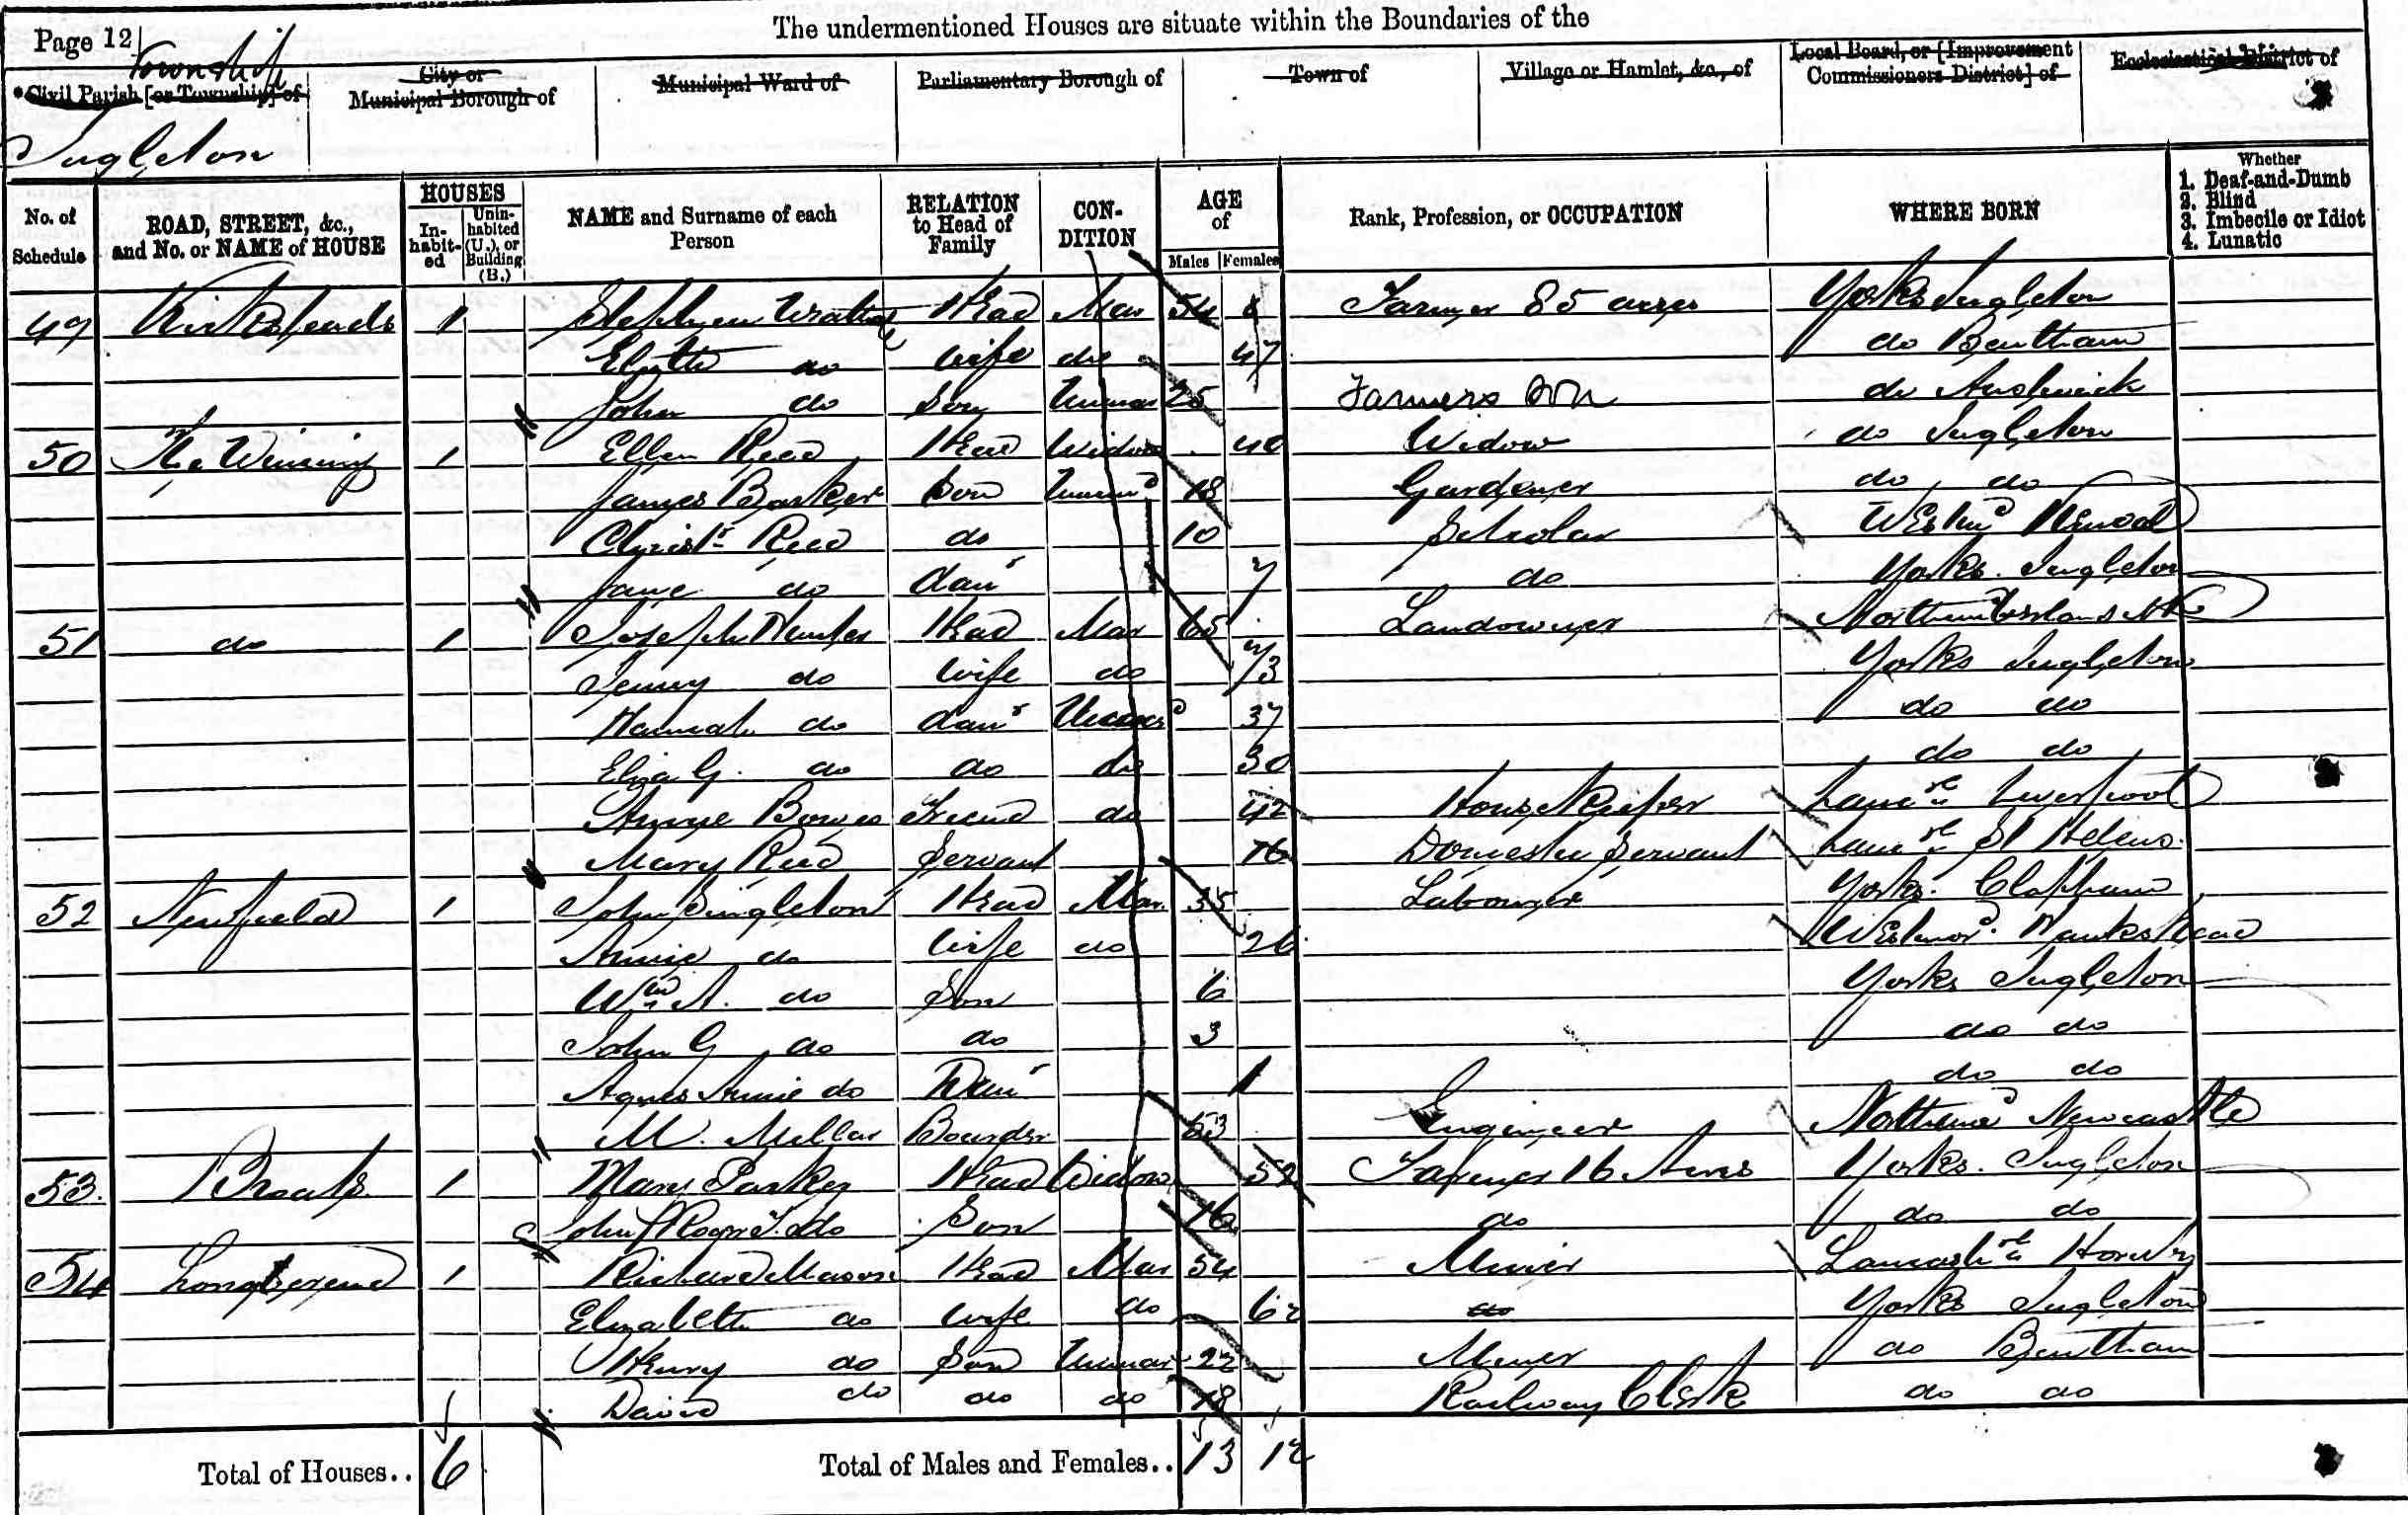 The undermentioned Houses are situate within the Boundaries of the
Page 12
Township
*Civil Parish [or Township] of
City or Municipal Borough of
Municipal Ward of
Parliamentary Borough of
Town of
Village or Hamlet, &c., of
Local Board, or [Improvement Commissioners District] of
Ecclesiastical District of
Ingleton
No. of Schedule
ROAD, STREET, &c., and No. or NAME of HOUSE
HOUSES
Inhabited
Uninhabited (U.), or Building (B.)
NAME and Surname of each Person
RELATION to Head of Family
CONDITION
AGE of
Males
Females
Rank, Profession, or OCCUPATION
WHERE BORN
Whether
1. Deaf-and-Dumb
2. Blind
3. Imbecile or Idiot
4. Lunatic
49 1 Stephen Head Mar 54 Farmer 85 acres Yorks Ingleton
do wife do 47 do Bentham
John do Son Unmar 25 Farmers Son do Austwick
50 1 Ellen Reed Head Widow 40 Widow do Ingleton
James Barker Son Unmd 18 Gardener do do
Christr Reed do 10 Scholar Westmd Kendal
Jane do daur 7 do Yorks. Ingleton
51 do 1 Joseph Hunter Head Mar 65 Landowner Northumberland
Jenny do wife do 73 Yorks Ingleton
Hannah do daur Unmard 37 do do
Eliza G. do do do 30 do do
Annie Bowes Friend do 42 House Keeper Lancre Liverpool
Mary Reed Servant 16 Domestic Servant Lancre St Helens.
52 Newfield 1 John Singleton Head Mar. 35 Labourer Yorks. Clapham
Annie do wife do 26 Westmord. Hawkshead
Wm A. do Son 6 Yorks Ingleton
John G do do 3 do do
Agnes Annie do Daur 1 do do
M. Millar Boarder 53 Engineer Northumd Newcastle
53. Broats 1 Mary Parker Head Widow 52 Farmer 16 Acres Yorks. Ingleton
John do Son 16 do do do
54 1 Richard Mason Head Mar 54 Miner Lancashre Hornby
Elizabeth do wife do 62 do Yorks Ingleton
Henry do Son Unmar 22 Miner do Bentham
David do do do 18 Railway Clerk do do
Total of Houses.. 6
Total of Males and Females.. 13 12